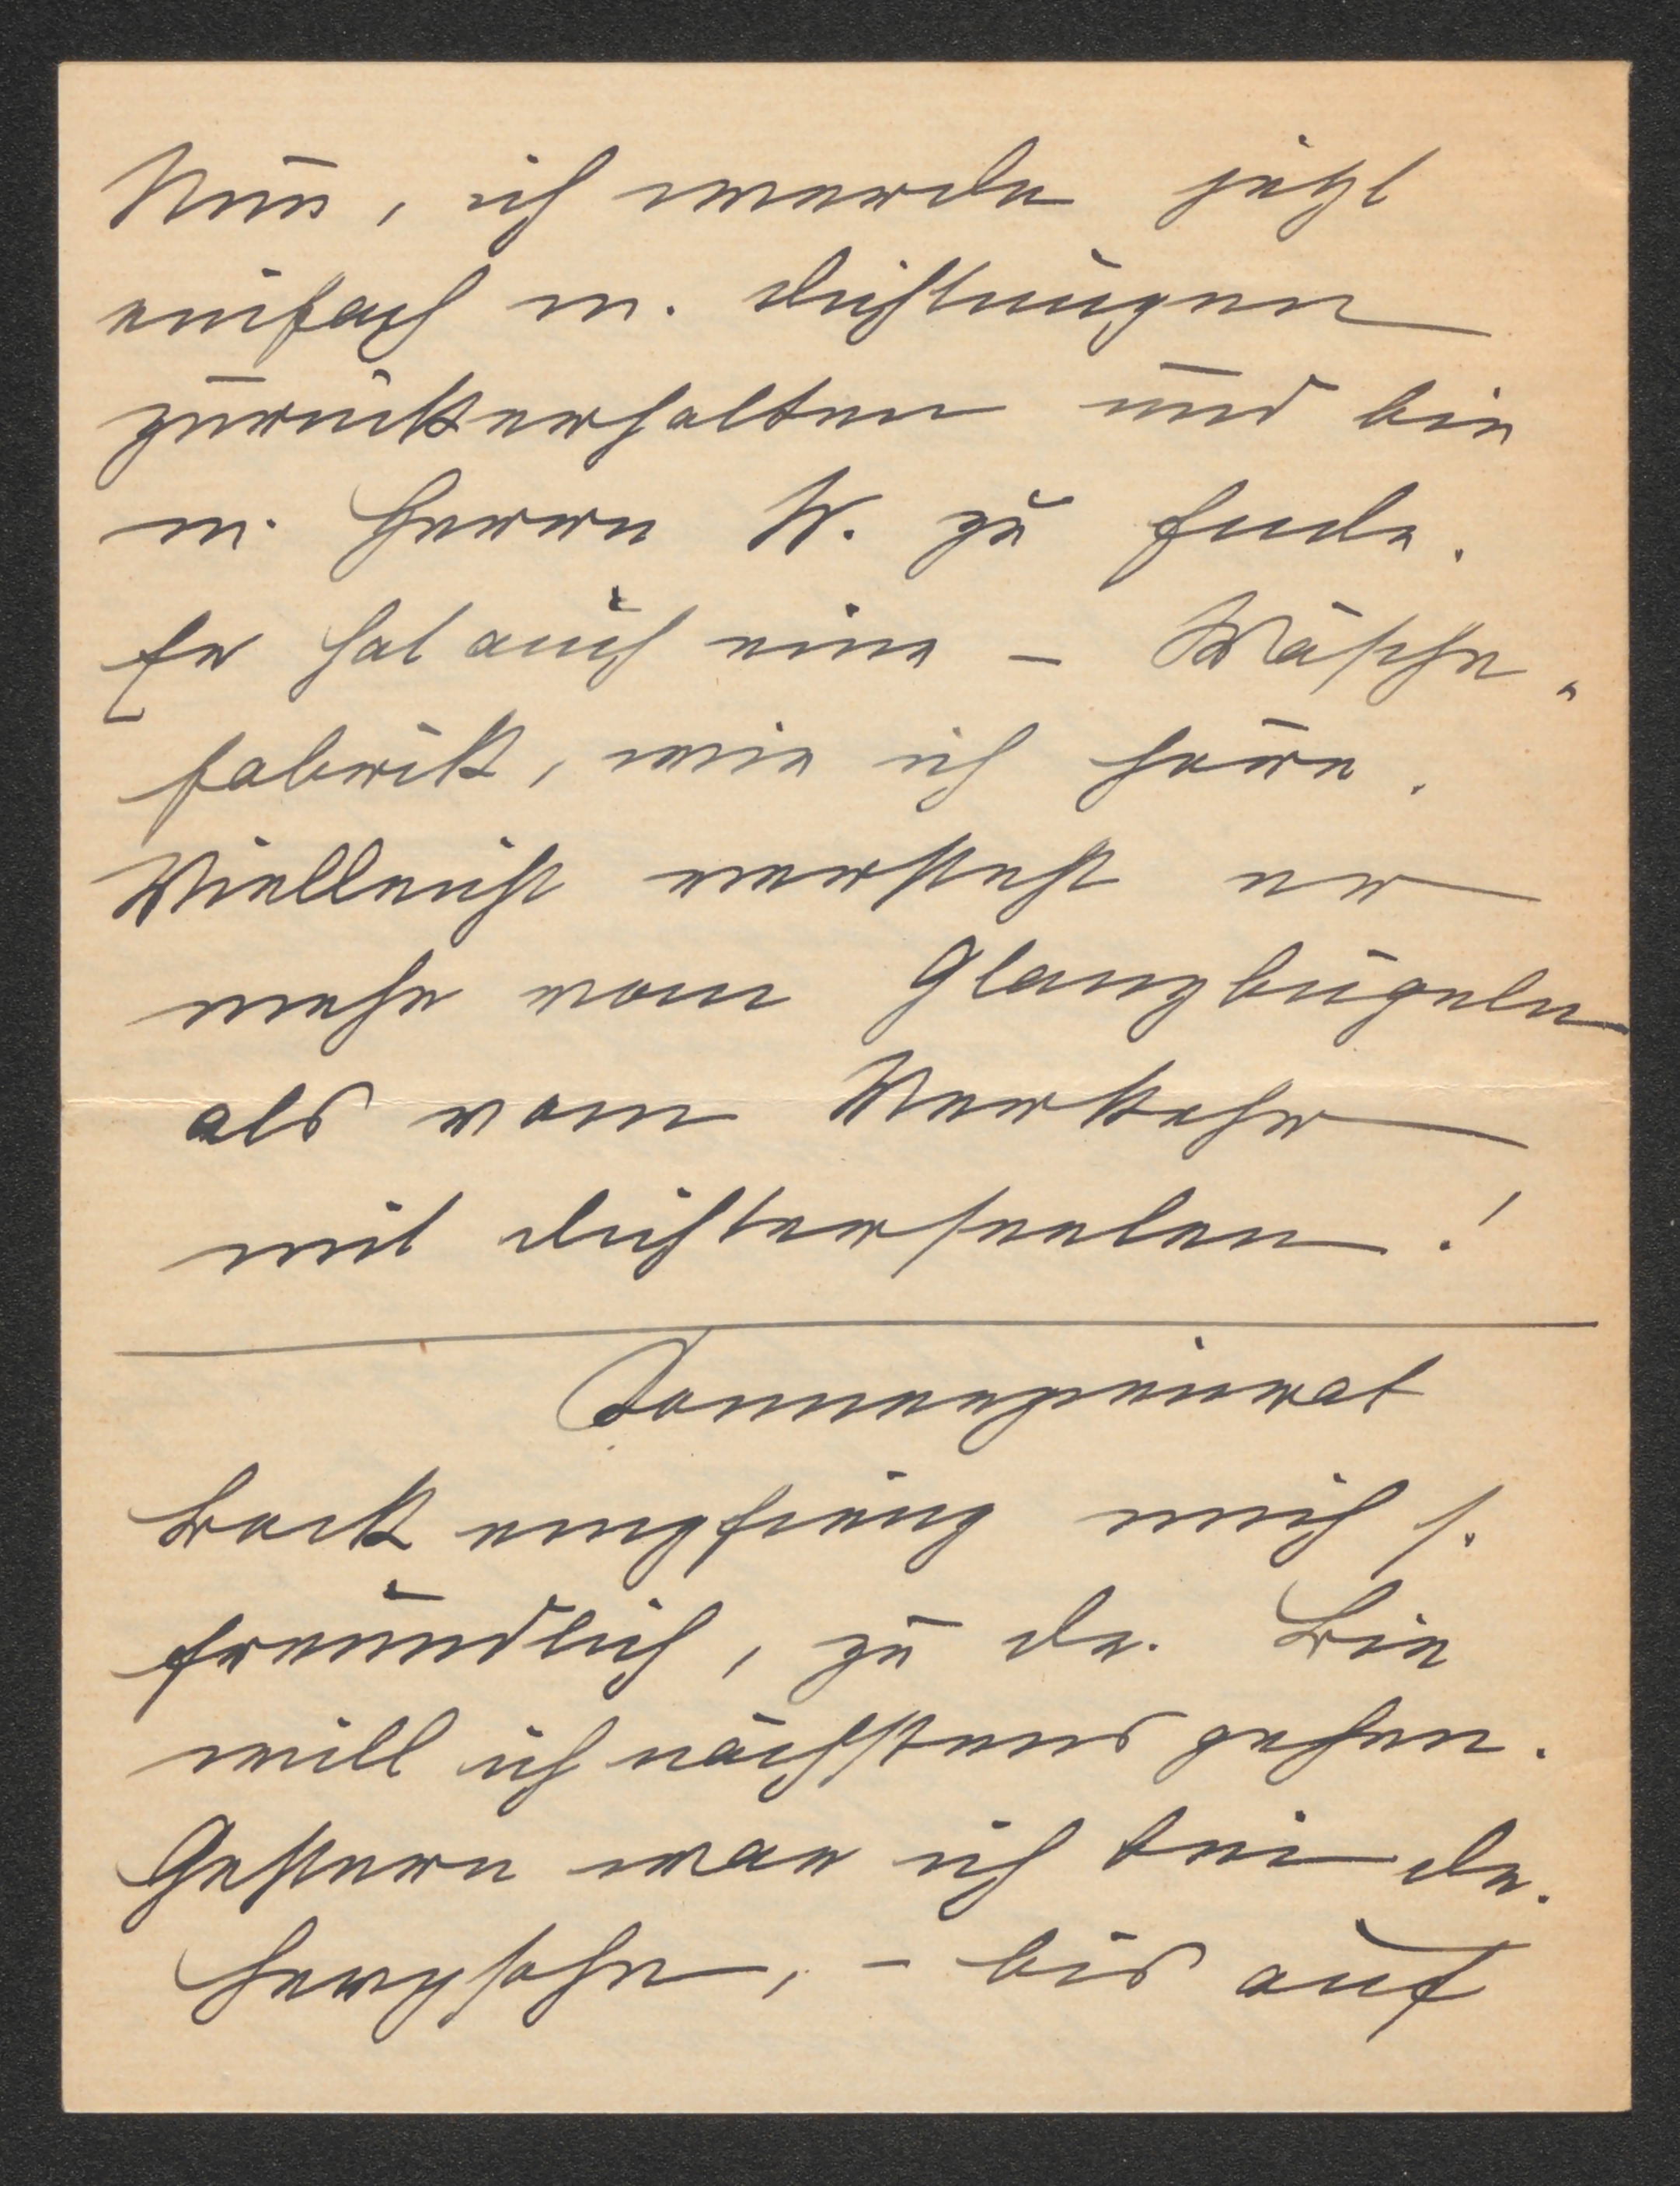 Nun, ich werde jetzt
einfach m. Dichtungen
zurückerhalten und bin
m. Herrn W. zu Ende.
Er hat auch eine – Wäsche-
fabrik, wie ich höre.
Vielleicht versteht er
mehr vom Glanzbügeln
als vom Verkehr
mit Dichterseelen!
Kommerzienrat
Bock empfieng mich s.
freundlich, zu Dr. Bie
will ich nächstens gehen.
Gestern war ich bei Dr.
– bis auf